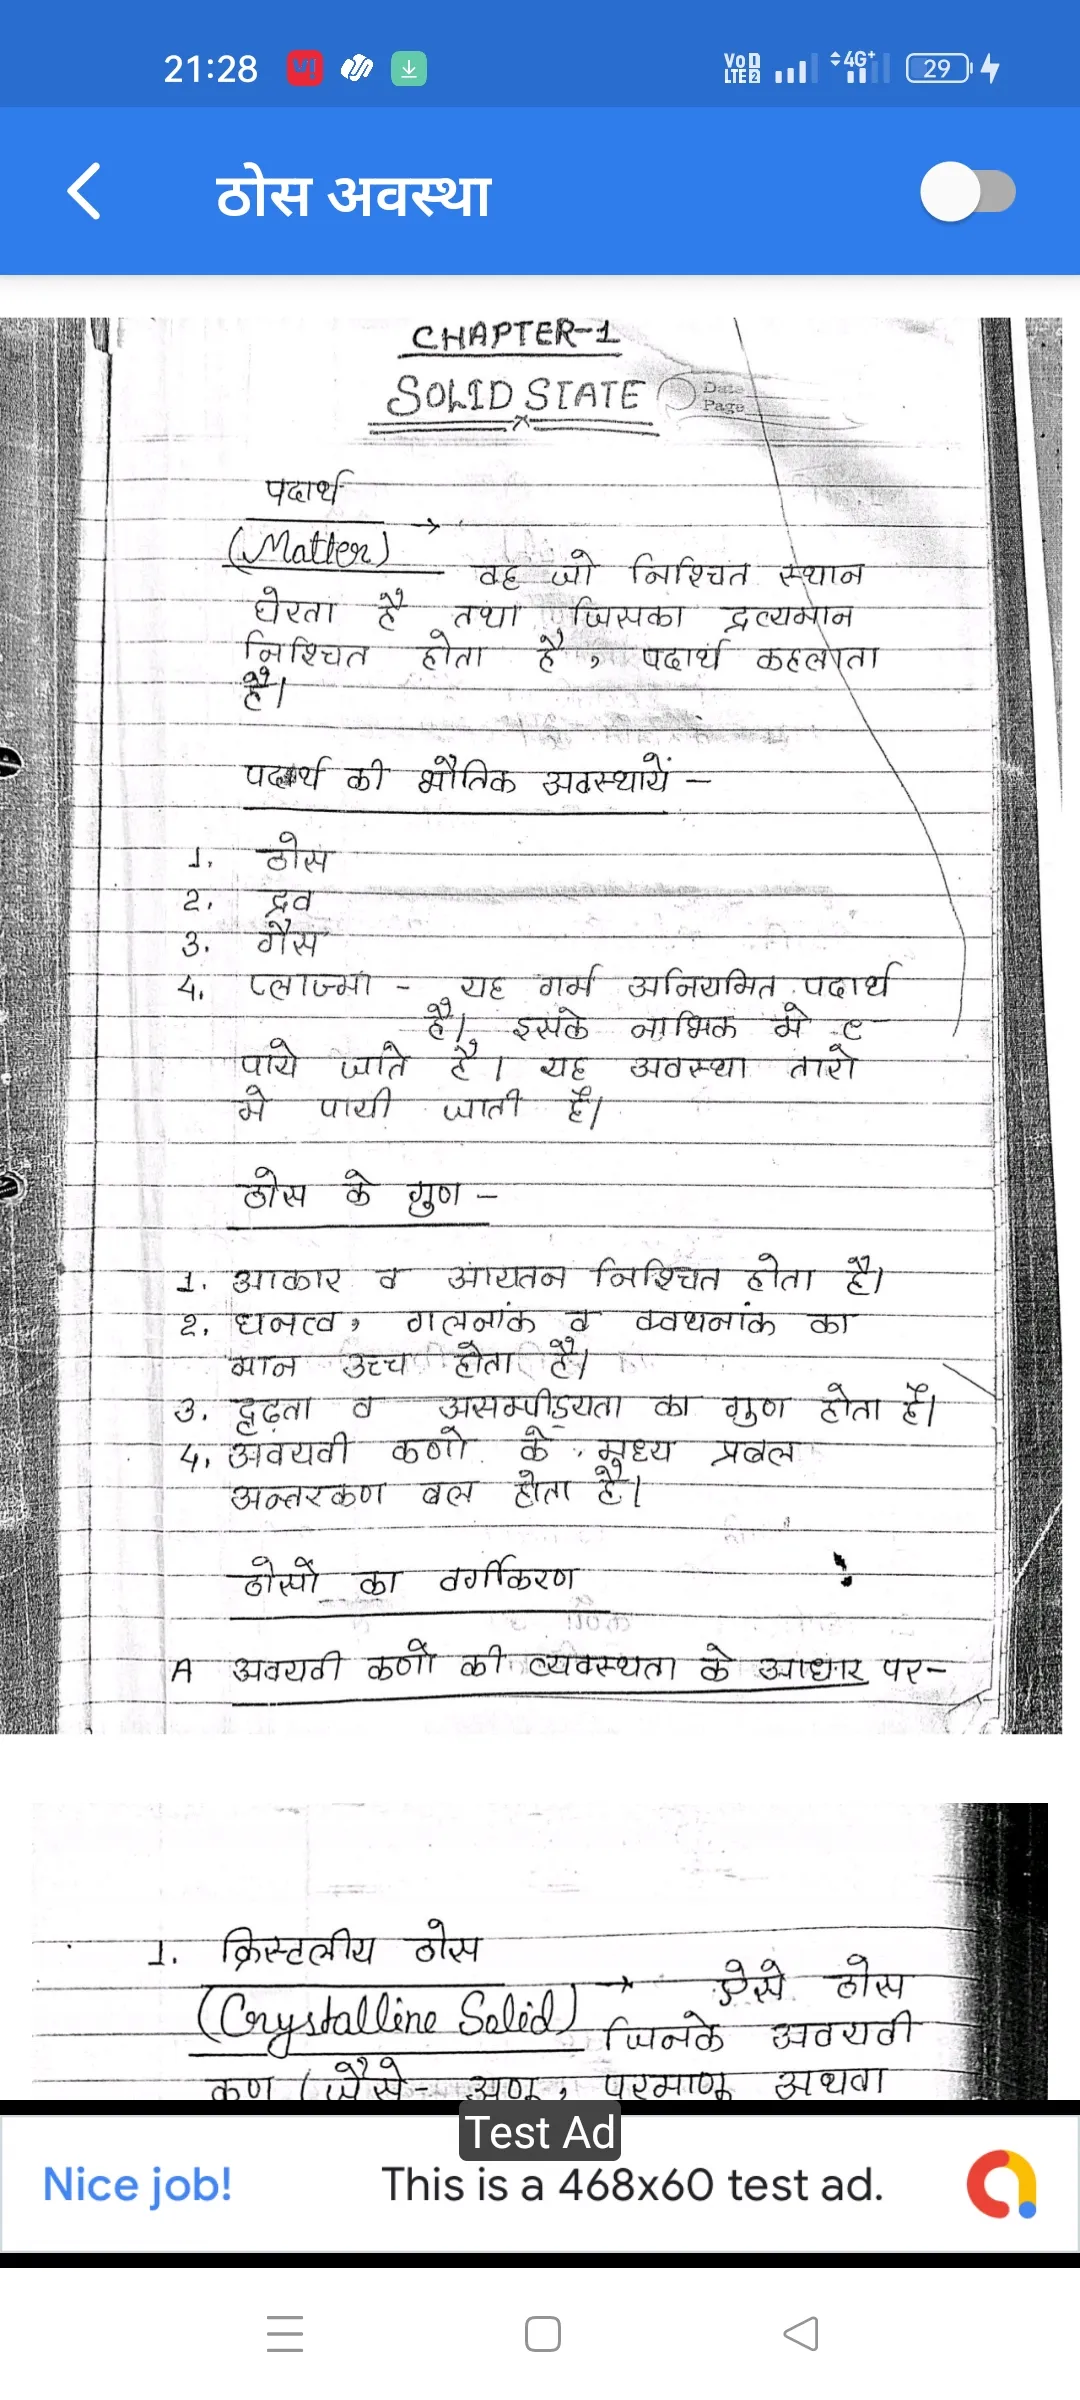 21:28
VoD LTE 2 4G+ 29
ठोस अवस्था
CHAPTER-1
SOLID STATE
Date
Page
पदार्थ
(Matter) →
वह जो निश्चित स्थान
घेरता है तथा जिसका द्रव्यमान
निश्चित होता है, पदार्थ कहलाता
है।
पदार्थ की भौतिक अवस्थायें -
1. ठोस
2. द्रव
3. गैस
4. प्लाज्मा - यह गर्म अनियमित पदार्थ
है। इसके नाभिक मे e-
पाये जाते है। यह अवस्था तारो
मे पायी जाती है।
ठोस के गुण -
1. आकार व आयतन निश्चित होता है।
2. घनत्व, गलनांक व क्वथनांक का
मान उच्च होता है।
3. द्रढ़ता व असम्पीड्यता का गुण होता है।
4. अवयवी कणो के मध्य प्रबल
अन्तरकण बल होता है।
ठोसो का वर्गीकरण
A अवयवी कणो की व्यवस्थता के आधार पर-
1. क्रिस्टलीय ठोस
(Crystalline Solid) → ऐसे ठोस
जिनके अवयवी
कण (जैसे- अणु, परमाणु अथवा
Test Ad
Nice job! This is a 468x60 test ad.